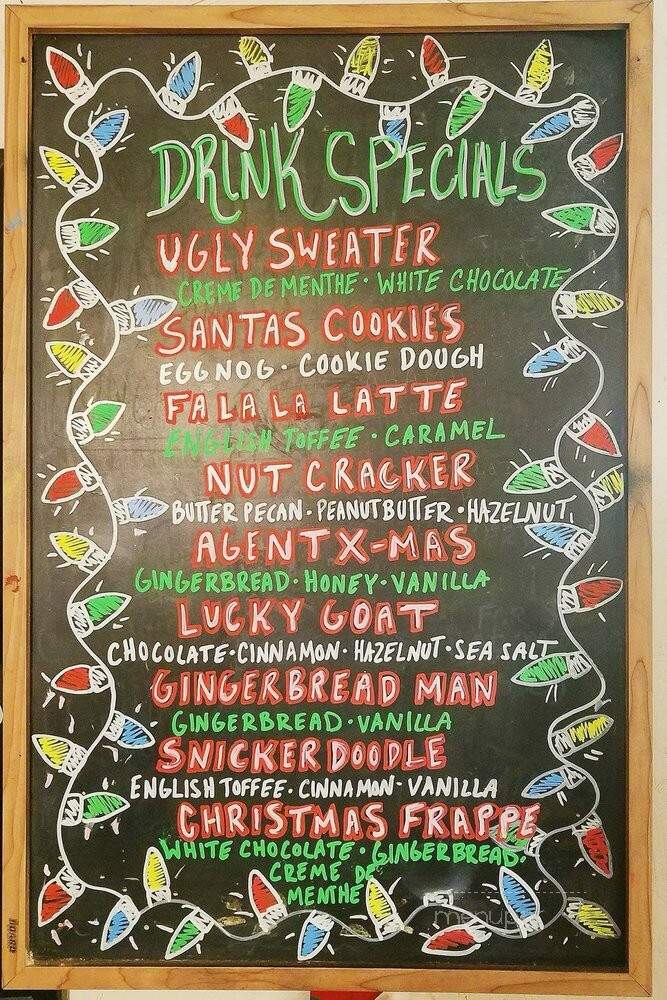 DRINK SPECIALS
UGLY SWEATER
CREME DE MENTHE · WHITE CHOCOLATE
SANTAS COOKIES
EGGNOG · COOKIE DOUGH
FA LA LA LA LATTE
ENGLISH TOFFEE · CARAMEL
NUT CRACKER
BUTTER PECAN · PEANUT BUTTER · HAZELNUT
AGENT X-MAS
GINGERBREAD · HONEY · VANILLA
LUCKY GOAT
CHOCOLATE · CINNAMON · HAZELNUT · SEA SALT
GINGERBREAD MAN
GINGERBREAD · VANILLA
SNICKER DOODLE
ENGLISH TOFFEE · CINNAMON - VANILLA
CHRISTMAS FRAPPE
WHITE CHOCOLATE · GINGERBREAD ·
CREME DE
MENTHE